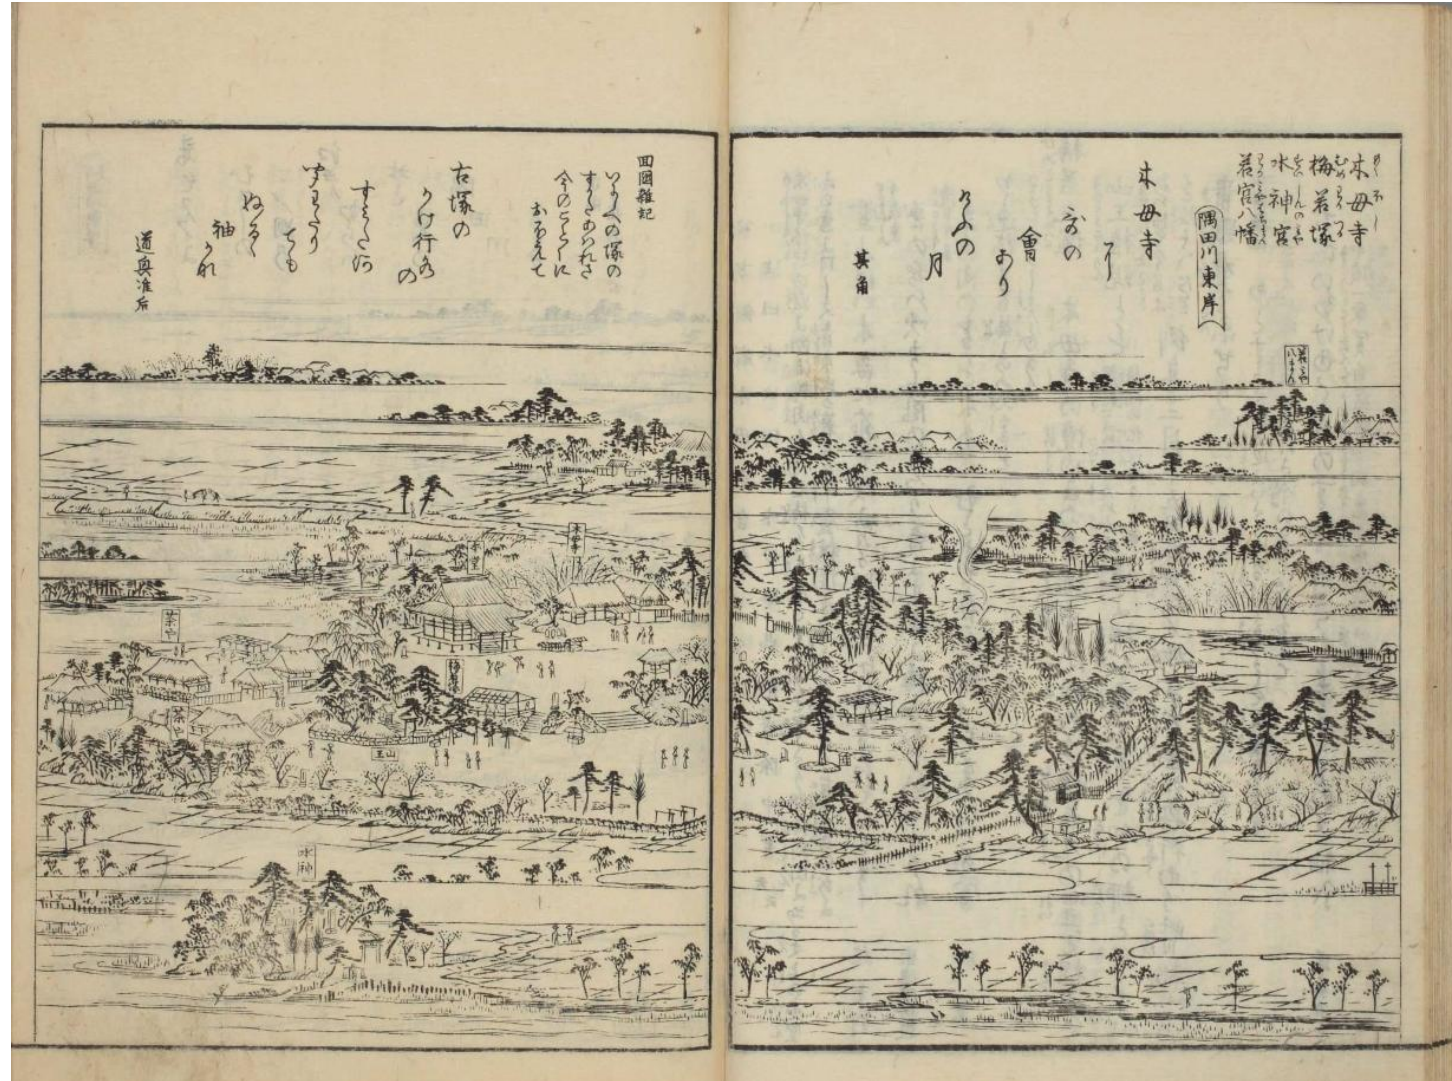 木母寺
梅若塚
水神宮
若宮八幡
隅田川東岸
木母寺
に
哥の
會
あり
けふの
月
其角
若みや
八まん
回國雜記
いにしへの塚の
すかたあはれさ
今のことくに
おほえて
古塚の
かけ行水
の
すみた河
聞わたり
ても
ぬるゝ
袖
かな
道興准后
木母寺
本堂
茶や
茶や
山王
水神